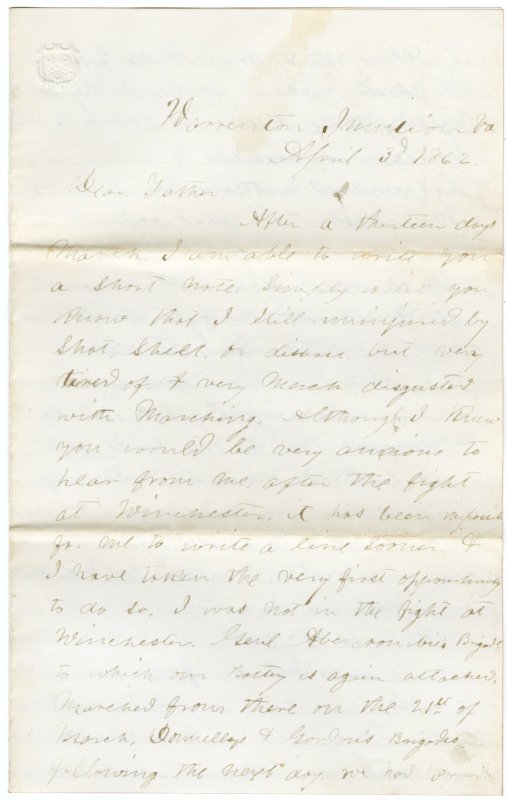 Warrenton Junction Va
April 3d 1862.
Dear Father
After a thirteen days
March, I am able to write you
a short note simply to let you
know that I still uninjured by
Shot, Shell, or disease, but very
tired of, & very much disgusted
with Marching. Although I knew
you would be very anxious to
hear from me, after the fight
at Winchester, it has been impossible
for me to write a line sooner &
I have taken the very first opportunity
to do so, I was not in the fight at
Winchester, Genl. Abercrombies Brigade
to which our Battery is again attached,
Marched from there on the 21st of
March, Donnellys & Gordon's Brigades
following the next day, we had